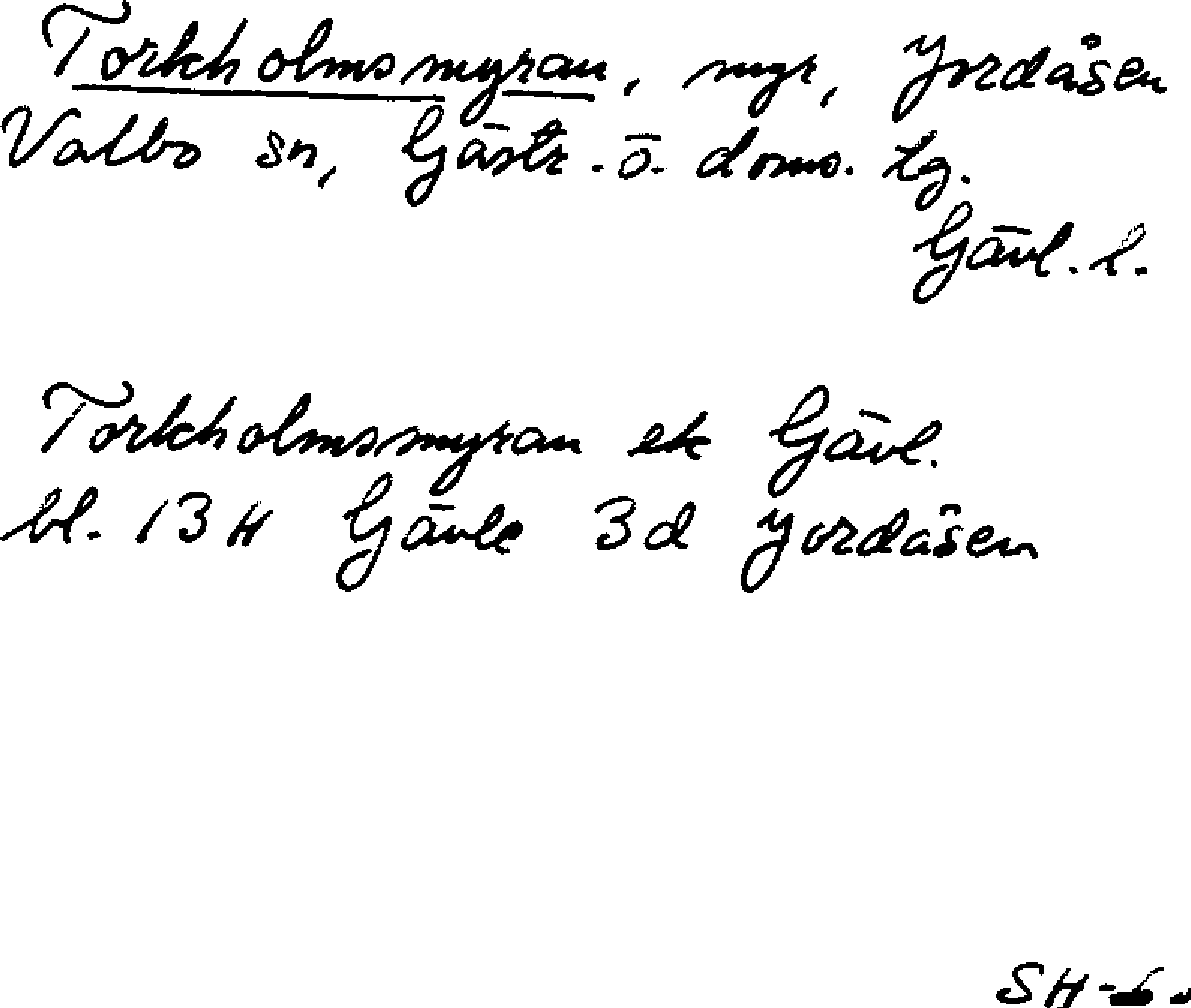 Torkholmsmyran, myr, Jordåsen
Valbo sn, Gästr. ö. doms. tg.
Gävl. l.
Torkholmsmyran ek Gävl.
bl. 13 H Gävle 3d Jordåsen
SH-